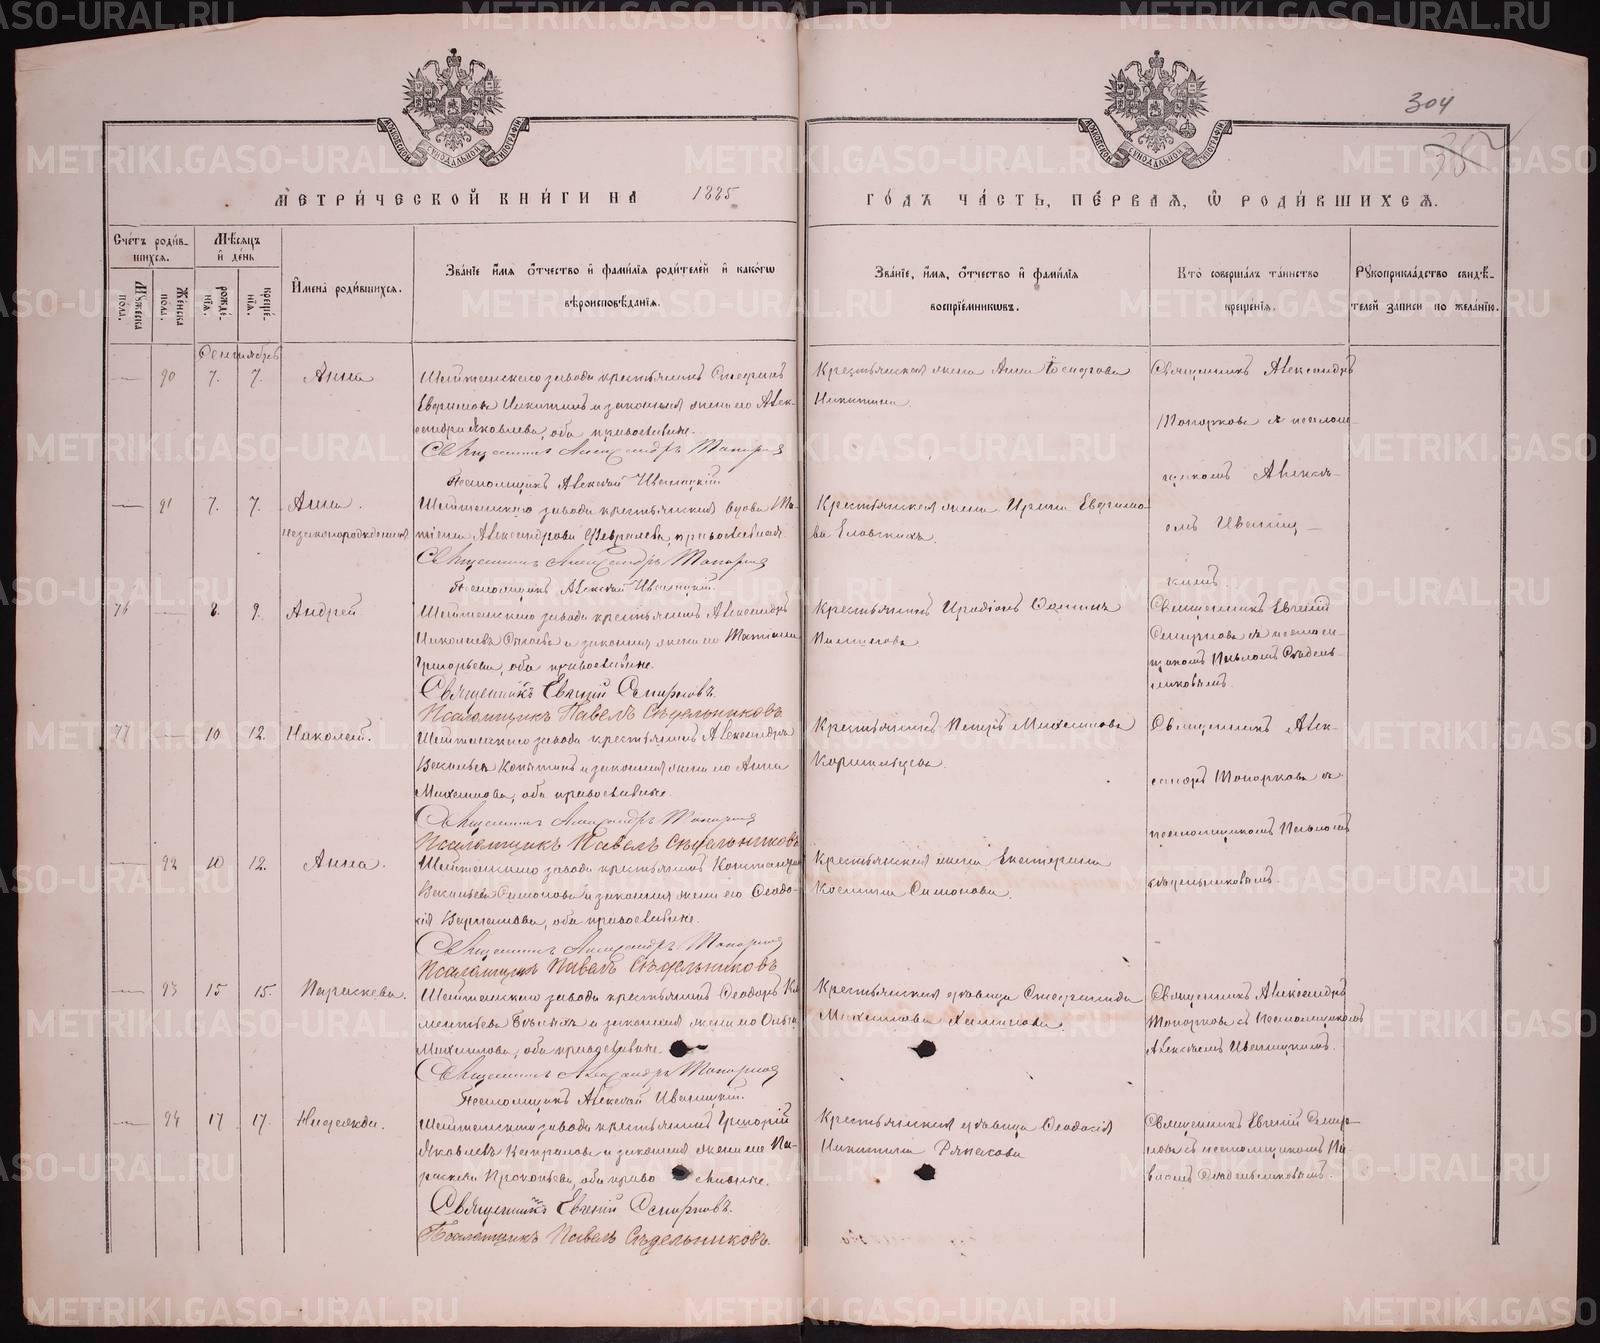 304
МОСКОВСКОЙ СѴНОДАЛЬНОЙ ТИПОГРАФІИ
МОСКОВСКОЙ СѴНОДАЛЬНОЙ ТИПОГРАФІИ
МЕТРИ́ЧЕСКОЙ КНИ́ГИ НА 1885 ГО́ДЪ ЧА́СТЬ, ПЕ́РВАѦ, Ѡ РОДИ́ВШИХСѦ.
Сче́тъ роди́в-
шихся.
Мѣ́сяцъ
и҆ де́нь
Му́жеска
пола.
Же́нска
пола.
рожде́-
нїѧ.
креще́-
нїѧ.
И҆мена̀ роди́вшихся.
Зва́нїе и҆́мѧ ѻ҆́тчество и҆ фами́лїѧ роди́телей и҆ како́гѡ
вѣроисповѣ́данїѧ.
Зва́нїе, и҆́мѧ, ѻ҆́тчество и҆ фами́лїѧ
воспрїе́мникѡвъ.
Кто̀ соверша́лъ та́инство
креще́нїѧ.
Рꙋкоприкла́дство свидѣ́-
телей за́писи по жела́нїю.
Сентябрь
— 90 7. 7. Анна
Шайтанскаго завода крестьянинъ Стефанъ
Евфимовъ Никитинъ и законная жена его Алек-
сандра Яковлева, оба православные.
Священникъ Александръ Топорковъ
Псаломщикъ Алексѣй Иваницкій
Крестьянская жена Анна
Никитина
Священникъ Александръ
Топорковъ съ псалом-
щикомъ Алексѣ-
емъ Иваниц-
кимъ
— 91 7. 7. Анна.
незаконнорожденная
Шайтанскаго завода крестьянская вдова Та-
тіана Александрова православная.
Священникъ Александръ Топорковъ
Псаломщикъ Алексѣй Иваницкій.
Крестьянская жена Ирина Евфимо-
ва
76 — 8. 9. Андрей
Шайтанскаго завода крестьянинъ Александръ
Николаевъ и законная жена его Татіана
Григорьева, оба православные.
Священникъ Евгеній Смирновъ.
Псаломщикъ Павелъ Сѣдельниковъ
Крестьянинъ Иродіонъ
Священникъ Евгеній
Смирновъ съ псалом-
щикомъ Павломъ Сѣдель-
никовымъ.
77 — 10 12. Николай.
Шайтанскаго завода крестьянинъ Александръ
Васильевъ Копытинъ и законная жена его Анна
Михаилова, оба православные.
Священникъ Александръ Топорковъ
Псаломщикъ Павелъ Сѣдельниковъ
Крестьянинъ Петръ Михаиловъ
Священникъ Алек-
сандръ Топорковъ съ
псаломщикомъ Павломъ
Сѣдельниковымъ.
— 92 10 12. Анна.
Шайтанскаго завода крестьянинъ
Васильевъ Симоновъ и законная жена его Ѳеодо-
сія оба православные.
Священникъ Александръ Топорковъ
Псаломщикъ Павелъ Сѣдельниковъ
Крестьянская жена Екатерина
Косьмина Симонова.
— 93 15 15. Параскева.
Шайтанскаго завода крестьянинъ Ѳеодоръ Кли-
ментьевъ Бѣлыхъ и законная жена его Ольга
Михаилова, оба православные.
Священникъ Александръ Топорковъ
Псаломщикъ Алексѣй Иваницкій.
Крестьянская дѣвица Стефанида
Михаилова
Священникъ Александръ
Топорковъ съ Псаломщикомъ
Алексѣемъ Иваницкимъ.
— 94 17 17. Надежда.
Шайтанскаго завода крестьянинъ Григорій
Яковлевъ Капраловъ и законная жена его Па-
раскева Прокопьева, оба православные.
Священникъ Евгеній Смирновъ.
Псаломщикъ Павелъ Сѣдельниковъ.
Крестьянская дѣвица Ѳеодосія
Никитина Русакова
Священникъ Евгеній Смир-
новъ съ псаломщикомъ Па-
вломъ Сѣдельниковымъ.
METRIKI.GASO-URAL.RU